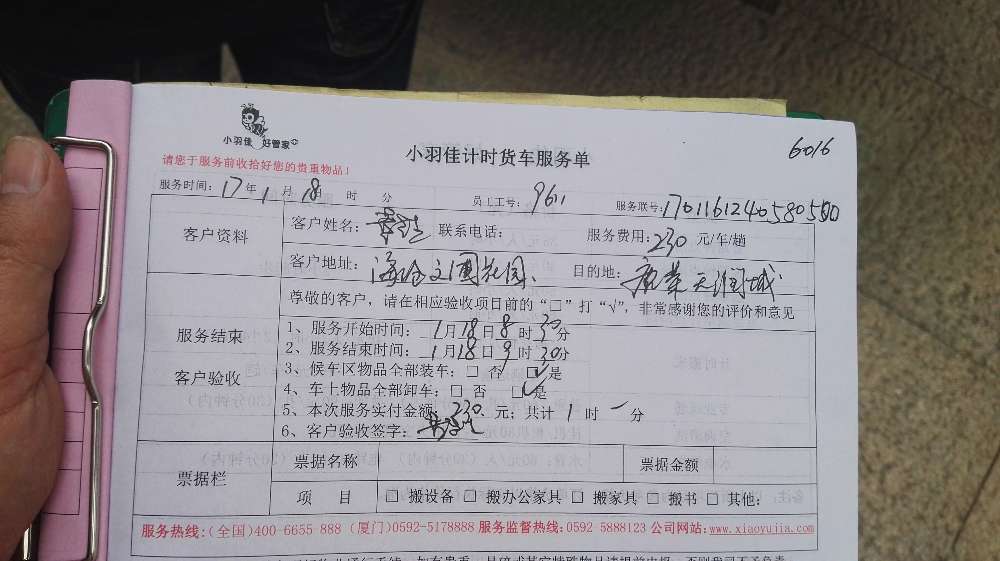 小羽佳 好管家
小羽佳计时货车服务单
6016
请您于服务前收拾好您的贵重物品！
服务时间：17年1月18日 时 分 员工工号：9611 服务联号：
客户资料
客户姓名： 联系电话： 服务费用：230 元/车/趟
客户地址： 花园 目的地： 天润城
服务结束
客户验收
尊敬的客户，请在相应验收项目前的“□”打“√”，非常感谢您的评价和意见
1、服务开始时间：1月18日8时30分
2、服务结束时间：1月18日9时30分
3、候车区物品全部装车：□ 否 □是
4、车上物品全部卸车：□ 否 □是
5、本次服务实付金额：230 元；共计 1 时 一 分
6、客户验收签字：
票据栏
票据名称 票据金额
项 目 □ 搬设备 □ 搬办公家具 □ 搬家具 □ 搬书 □ 其他：
服务热线：(全国)400-6655 888 (厦门)0592-5178888 服务监督热线：0592-5888123 公司网站：www.xiaoyujia.com